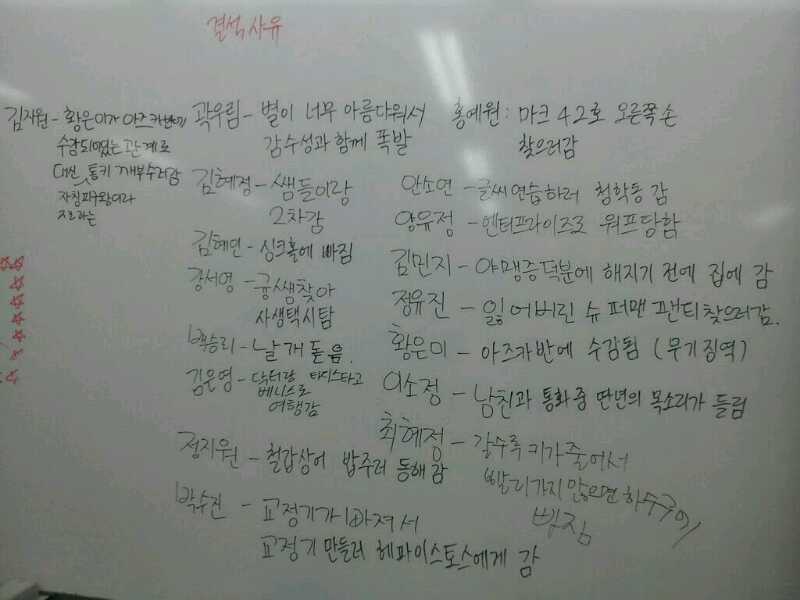 결석사유
김지원 - 황은미가 아즈카반에
수감되었는 관계로
대신 통키 깨부수러감
자칭피구왕이라
지으라는
곽우림 - 별이 너무 아름다워서
감수성과 함께 폭발
김혜정 - 쌤들이랑
2차감
김혜민 - 싱크홀에 빠짐
강서영 - 궁쌤찾아
사생택시탐
박승리 - 날개 돋음.
김은영 - 닥터랑 타디스타고
베니스로
여행감
정지원 - 철갑상어 밥주러 동해 감
박수진 - 교정기가 빠져서
교정기 만들러 헤파이스토스에게 감
홍예원 : 마크 42호 오른쪽 손
찾으러감
안소연 - 글씨연습하러 청학동 감
양유정 - 엔터프라이즈로 워프당함
김민지 - 야맹증덕분에 해지기 전에 집에 감
정유진 - 잃어버린 슈퍼맨 팬티찾으러감.
황은미 - 아즈카반에 수감됨 (무기징역)
이소정 - 남친과 통화중 딴년의 목소리가 들림
최혜정 - 갈수록 키가줄어서
빨리가지 않으면 하수구에
빠짐